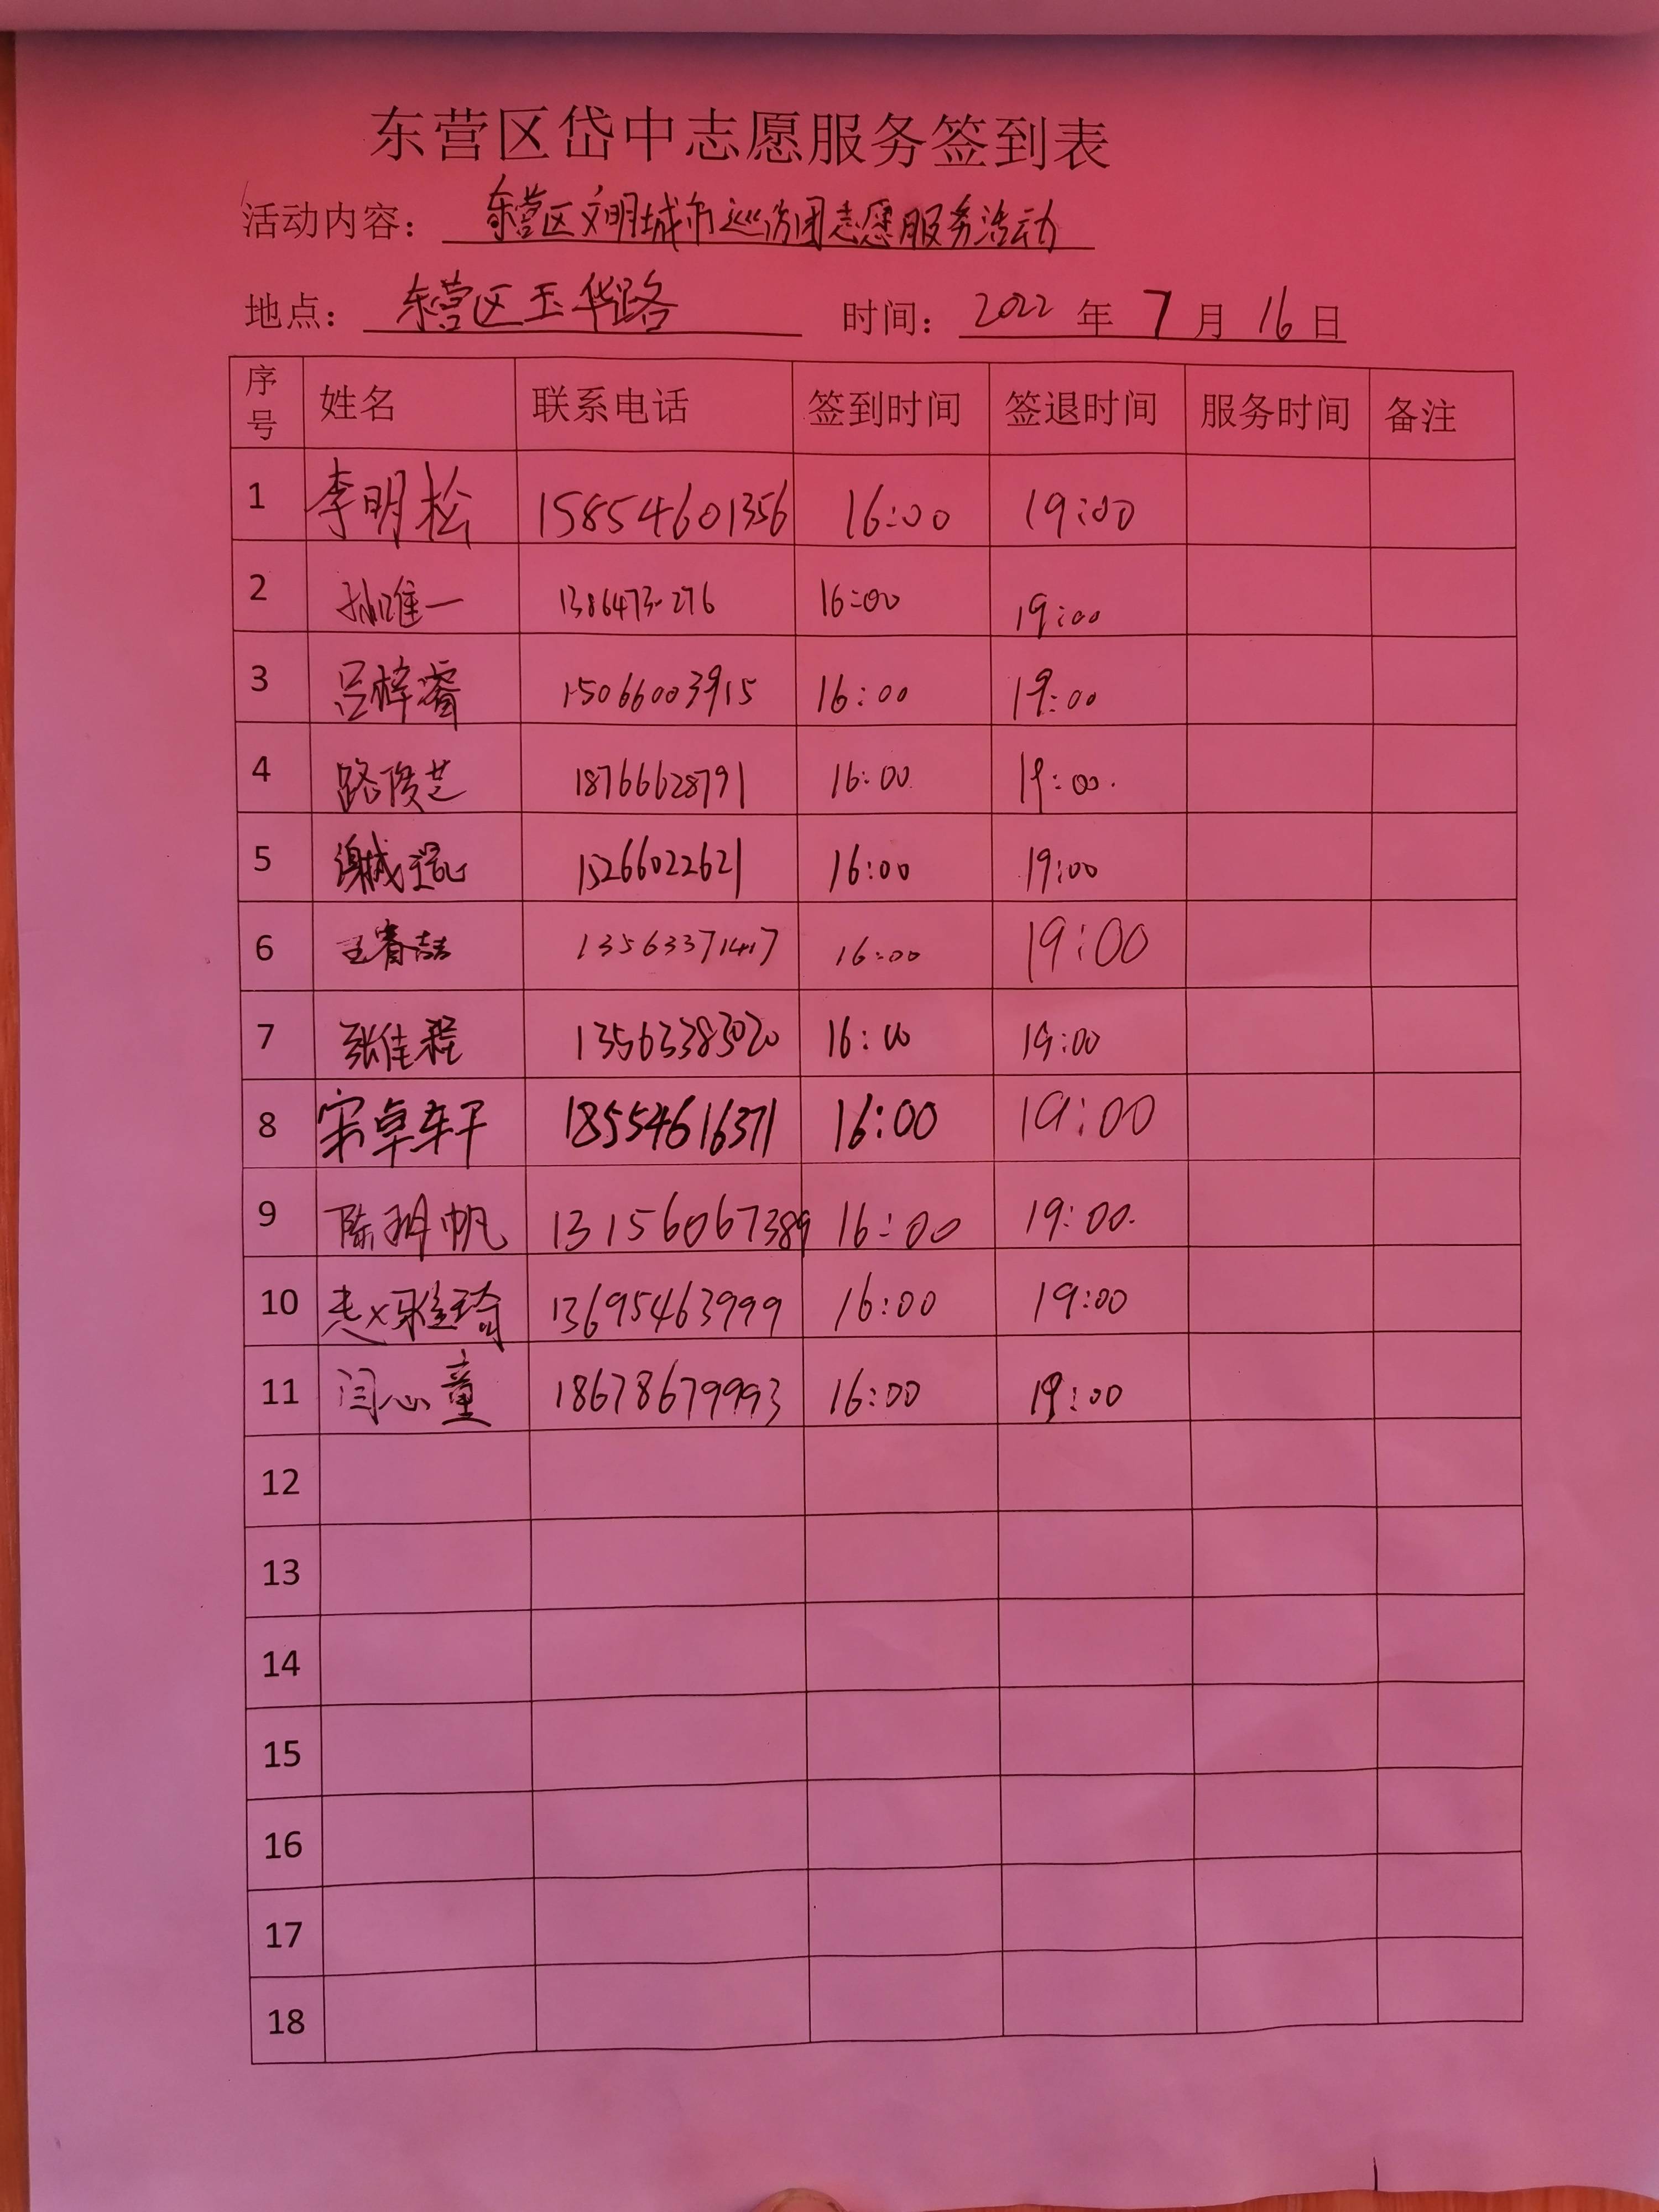 东营区岱中志愿服务签到表
活动内容： 东营区文明城市巡访团志愿服务活动
地点： 东营区玉华路 时间： 2022 年 7 月 16 日
序号 姓名 联系电话 签到时间 签退时间 服务时间 备注
1 李明松 15854601356 16:00 19:00
2 孙唯一 16:00 19:00
3 吕梓睿 15066003915 16:00 19:00
4 路俊芝 18766628791 16:00 19:00.
5 谢 15266022621 16:00 19:00
6 王睿喆 13563371417 16:00 19:00
7 张佳程 13563383020 16:00 19:00
8 宋卓轩 18554616371 16:00 19:00
9 陈 帆 13156067389 16:00 19:00.
10 赵雅琦 13695463999 16:00 19:00
11 闫心童 18678679993 16:00 19:00
12
13
14
15
16
17
18